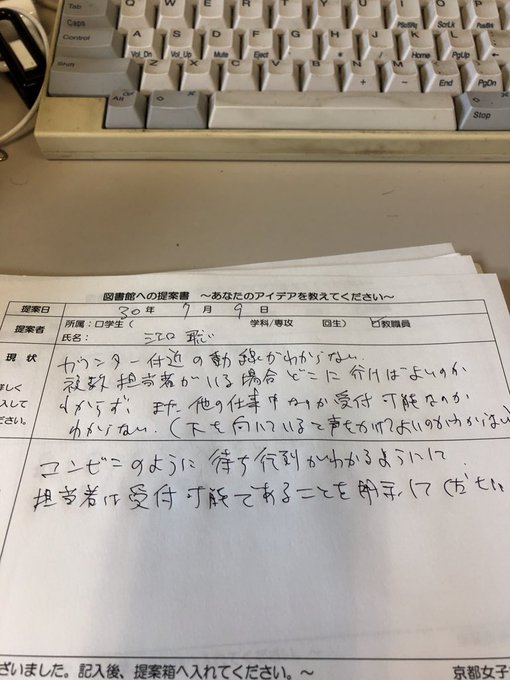 Tab Q W E R T Y U I O P
Caps A S D F G H J K L PsSRq ScrLk Pause
Control Vol_Dn Vol_Up Mute Eject * / Home PgUp
Shift Z X C V B N M + - End PgDn
Alt Opt Stop
図書館への提案書 ~あなたのアイデアを教えてください~
提案日 30年 7月 9日
提案者 所属:□学生( 学科/専攻 回生) ☑教職員
氏名: 江口 聡
現状 カウンター付近の動線がわからない.
複数担当者がいる場合どこに行けばよいのか
わからず. また他の仕事中なのか受付可能なのか
わからない.(下を向いていると声をかけてよいのかわからない)
詳しく
入して
ださい。
コンビニのように待ち行列がわかるようにして
担当者は受付可能であることを明示してください
ざいました。記入後、提案箱へ入れてください。~ 京都女子